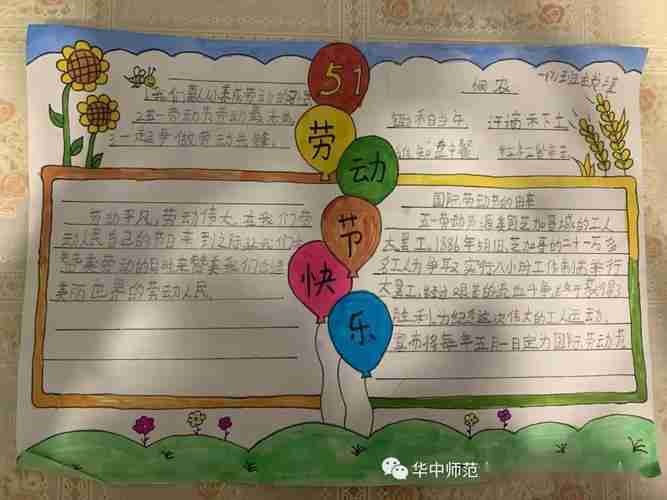 51
劳
动
节
快
乐
我们要从小养成劳动的习惯
2.五一劳动节劳动最光
3.一起争做劳动先锋。
悯农
锄禾日当午 汗滴禾下土
谁知盘中餐 粒粒
劳动平凡,劳动伟大,在我们劳
动人民自己的节日来到之际让我们
赞美劳动的 赞美我们
美丽世界的劳动人民。
国际劳动节的由来
五一劳动节源美国芝加哥城的工人
大罢工,1886年5月1日,芝加哥的二十一万多
名工人为争取实行八小时工作制而举行
大罢工,经过艰苦的流血斗争终于
胜利,为纪念这次伟大的工人运动,
宣布将每年五月一日定为国际劳动节
华中师范